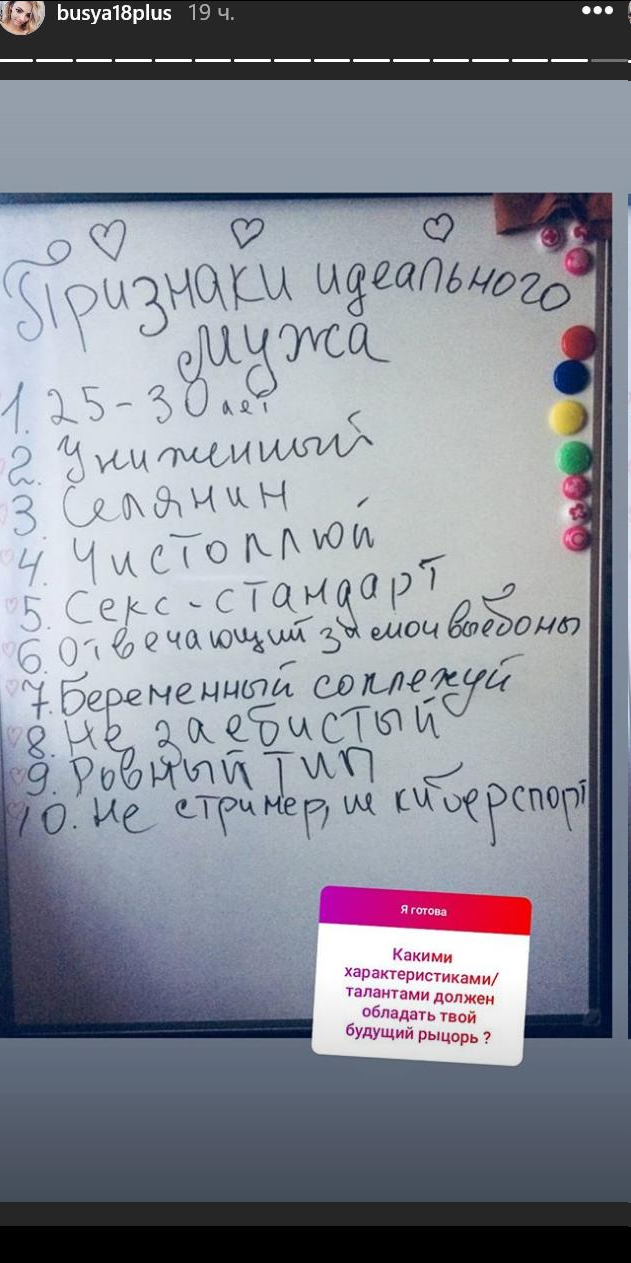 busya18plus 19 ч.
Признаки идеального
мужа
1. 25-30 лет
2. Униженный
3. Селянин
4. Чистоплюй
5. Секс-стандарт
6. Отвечающий за мои выебоны
7. Беременный соплежуй
8. Не заебистый
9. Ровный тип
10. Не стример, не киберспорт
Я готова
Какими
характеристиками/
талантами должен
обладать твой
будущий рыцорь ?